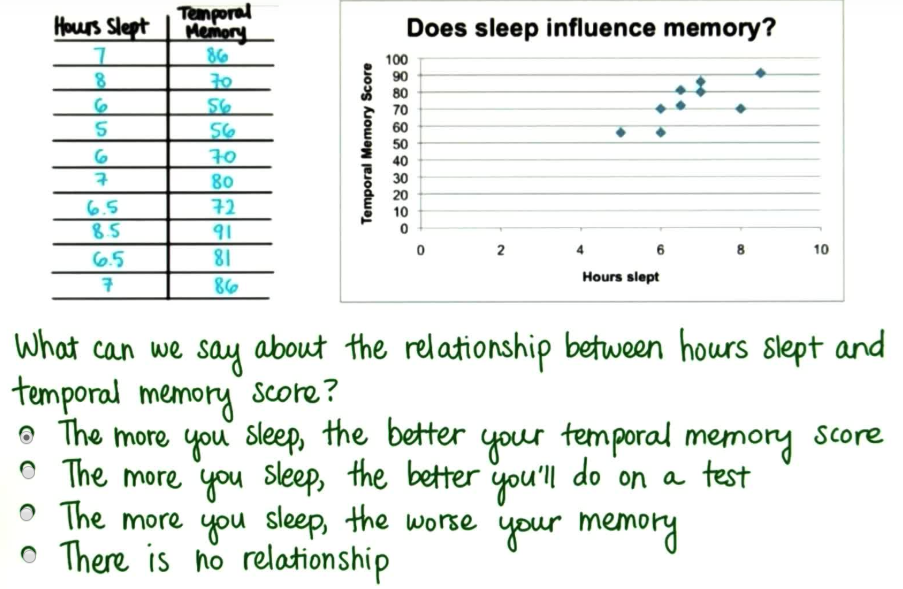 Hours Slept Temporal Memory
7 86
8 70
6 56
5 56
6 70
7 80
6.5 72
8.5 91
6.5 81
7 86
Does sleep influence memory?
Temporal Memory Score
100
90
80
70
60
50
40
30
20
10
0
0 2 4 6 8 10
Hours slept
What can we say about the relationship between hours slept and
temporal memory score?
The more you sleep, the better your temporal memory score
The more you sleep, the better you'll do on a test
The more you sleep, the worse your memory
There is no relationship